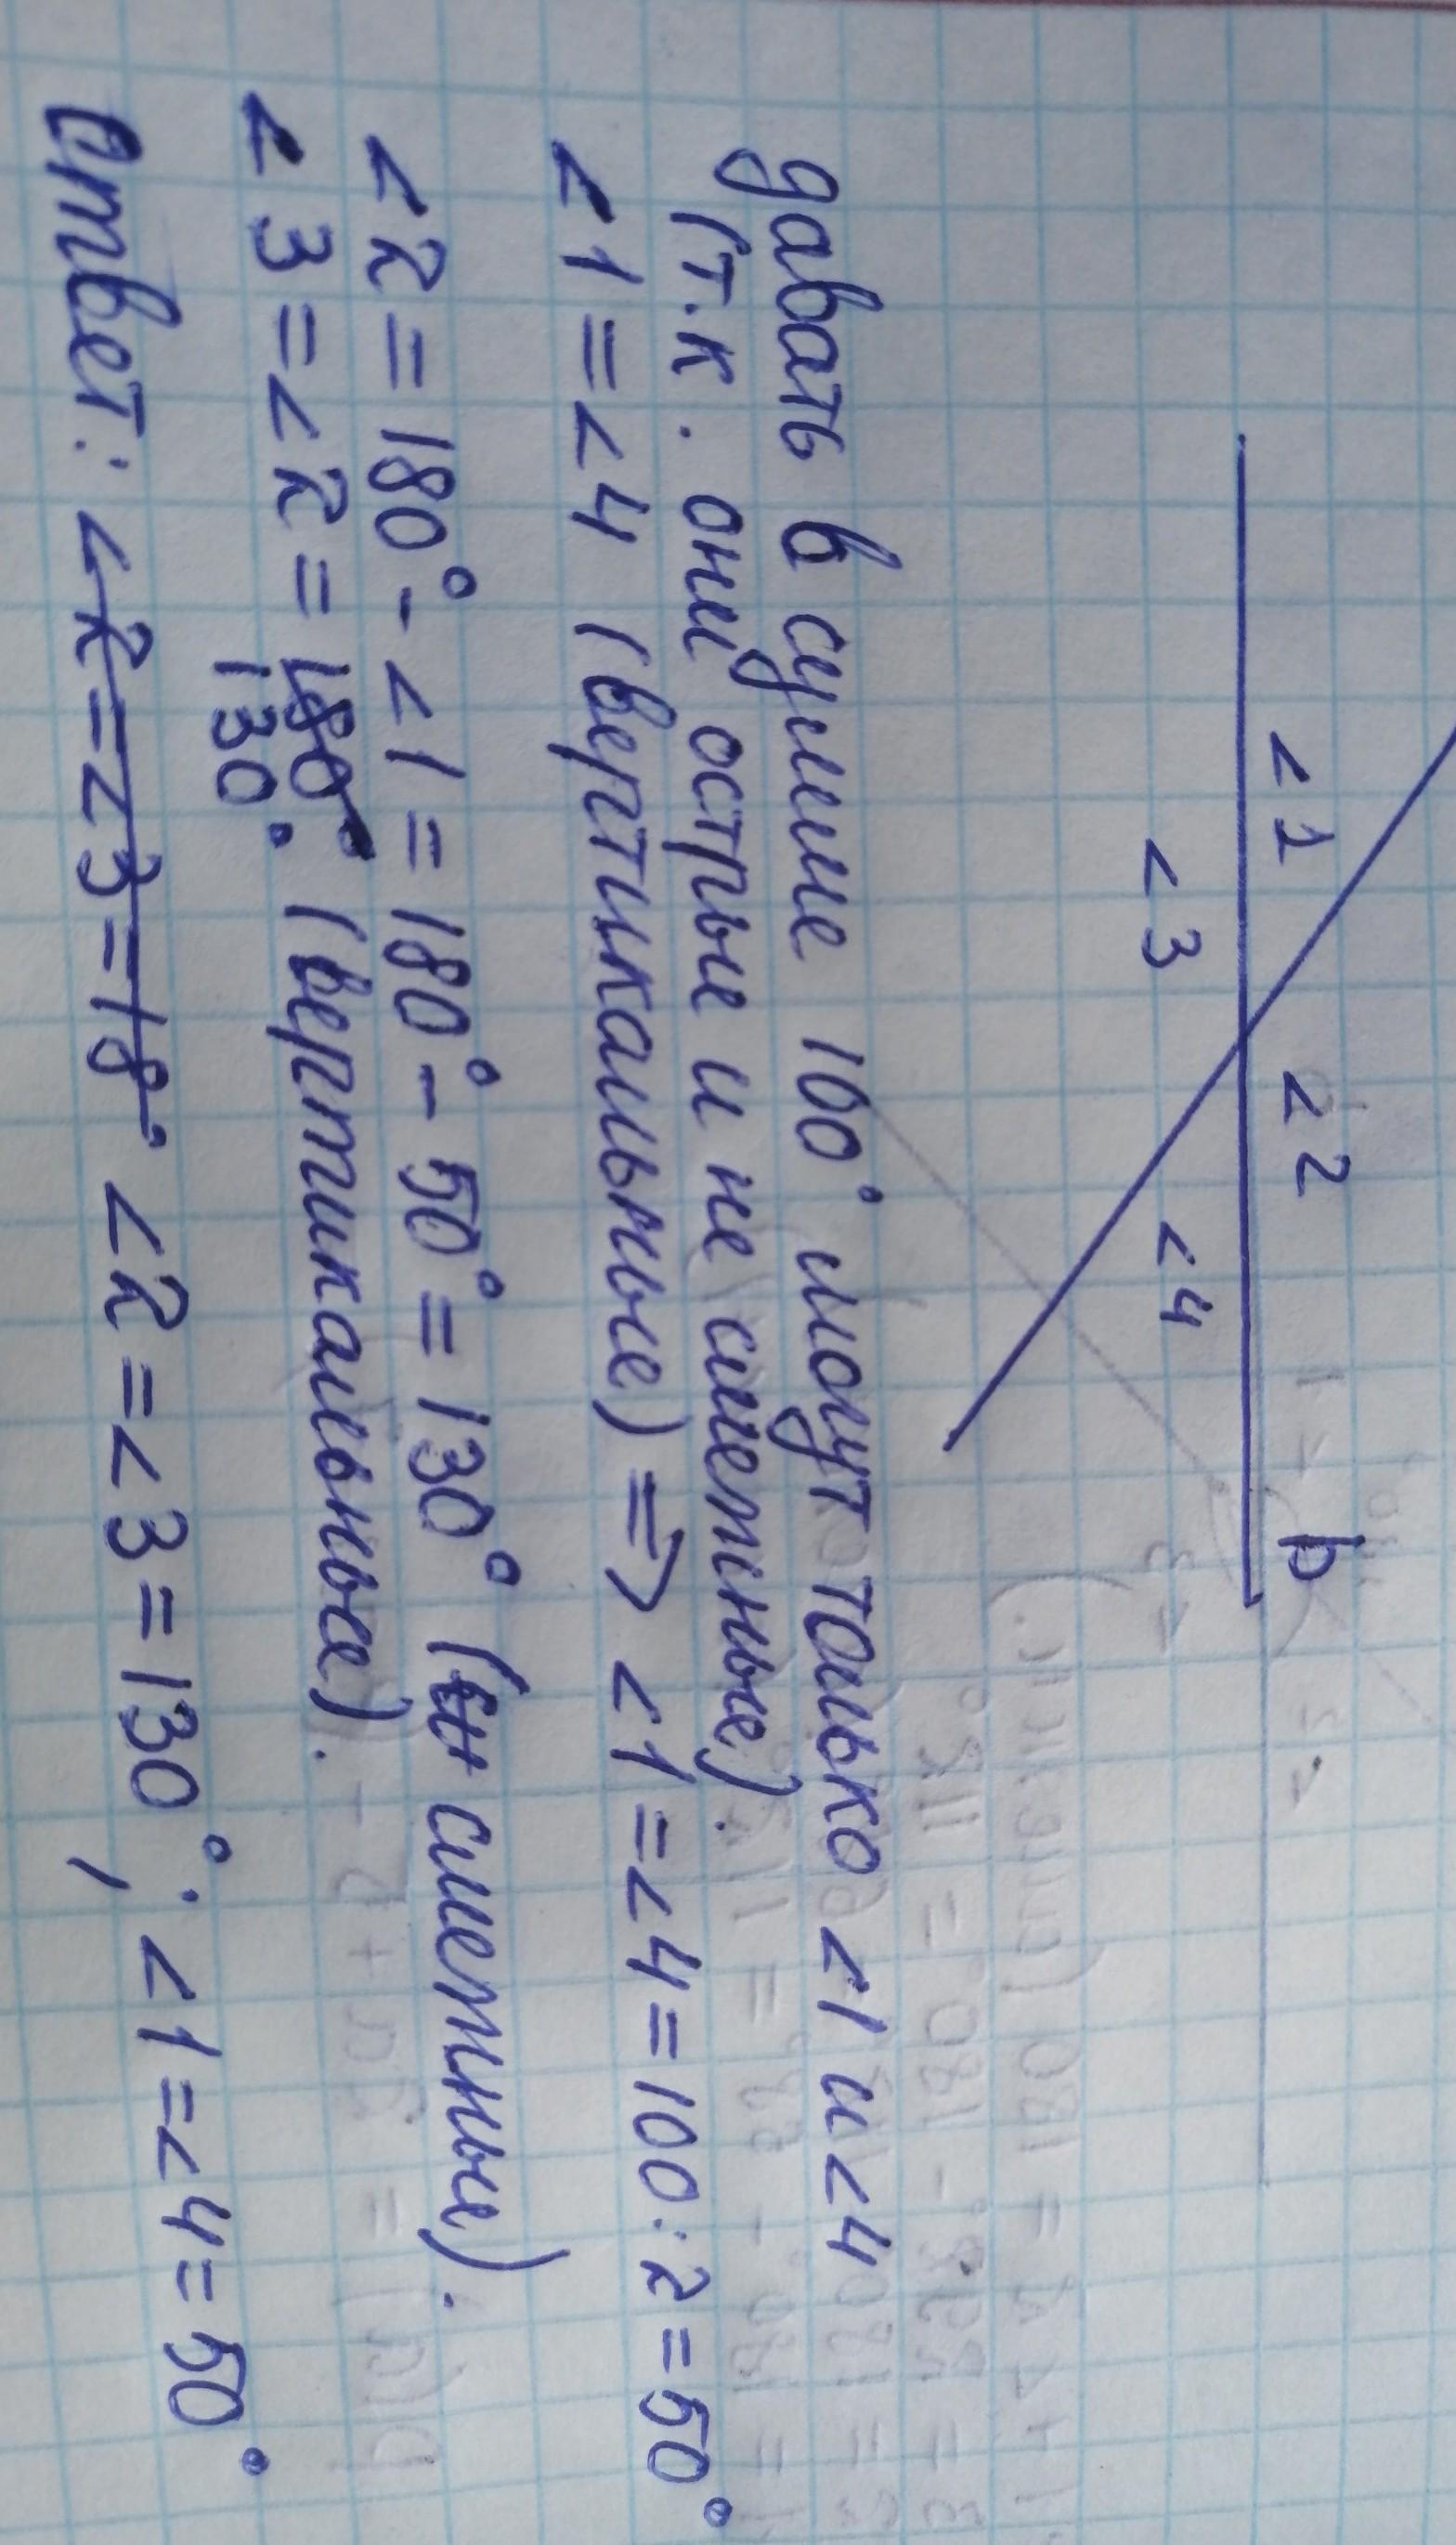 b
<1 <2
<3 <4
давать в сумме 100° могут только <1 и <4
(т.к. они острые и не смежные).
<1 = <4 (вертикальные) => <1 = <4 = 100 : 2 = 50°
<2 = 180° - <1 = 180° - 50° = 130° (смежные).
<3 = <2 = 180° (вертикальные).
130°
Ответ: <2 = <3 = 18° <2 = <3 = 130°; <1 = <4 = 50°